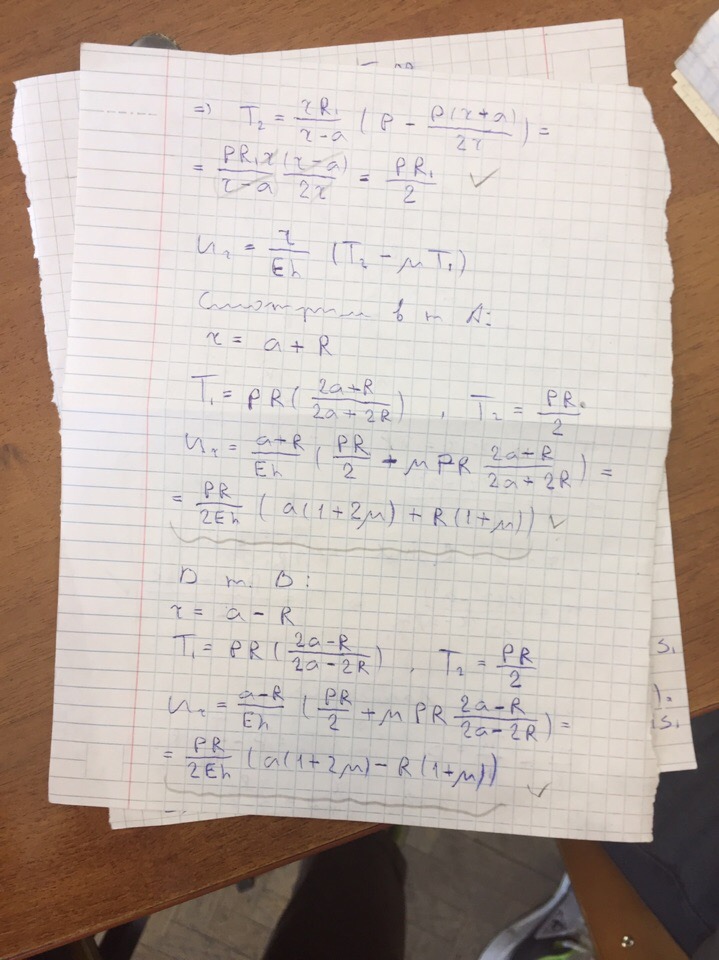 => T₂ = rR₁/(r-a) (P - P(r+a)/2r) =
= PR₁r/(r-a) (r-a)/2r = PR₁/2 ✓
u_r = r/Eh (T₂ - μT₁)
Смотрим в т A:
r = a + R
T₁ = PR((2a+R)/(2a+2R)) , T₂ = PR./2
u_r = (a+R)/Eh (PR/2 + μPR (2a+R)/(2a+2R)) =
= PR/2Eh (a(1+2μ) + R(1+μ)) ✓
В т. B:
r = a - R
T₁ = PR((2a-R)/(2a-2R)) , T₂ = PR/2
u_r = (a-R)/Eh (PR/2 + μPR (2a-R)/(2a-2R)) =
= PR/2Eh (a(1+2μ) - R(1+μ)) ✓